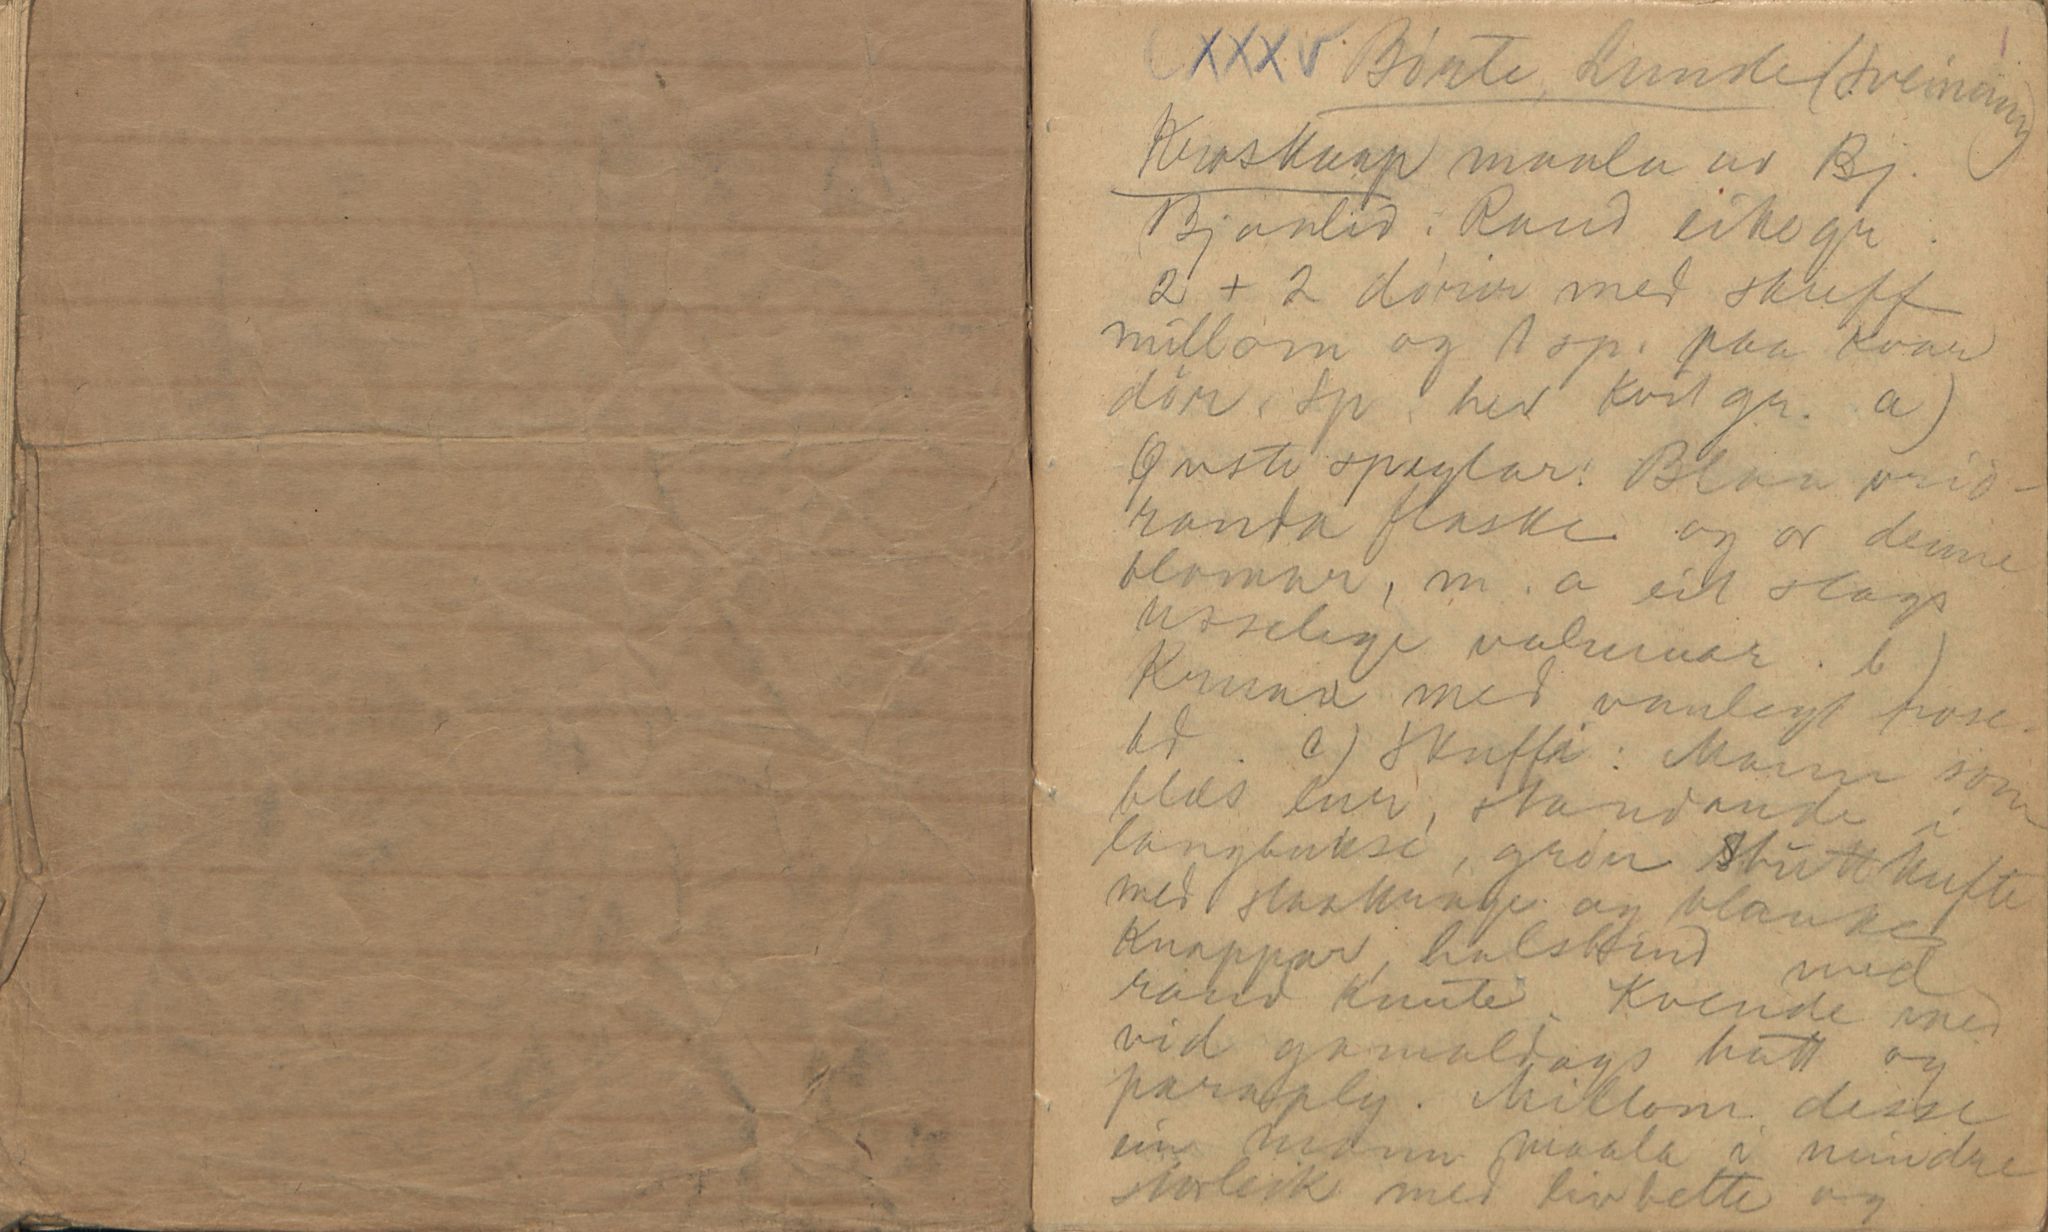 CXXXV Børte, Lunde (Sveinung) 1
Krosskaap maala av Bj.
Bjaalid: Raud eikegr.
2 + 2 dører med skuff
millom og 1 sp. paa kvar
dør. Sp. hev kvit gr. a)
Øvste speglar: Blaa vrid-
randa flaske og or denne
blomar, m. a eit slags
usselege valmuar. b)
Kruna med vanlegt rose-
bd. c) Skuffi: Mann som
blæs lur, standande i
langbukse, grøn stuttkufte
med staakrage og blanke
knappar, halsbind med
raud knute. Kvende med
vid gamaldags hatt og
paraply. Millom desse
ein mann maala i mindre
storleik med livbelte og